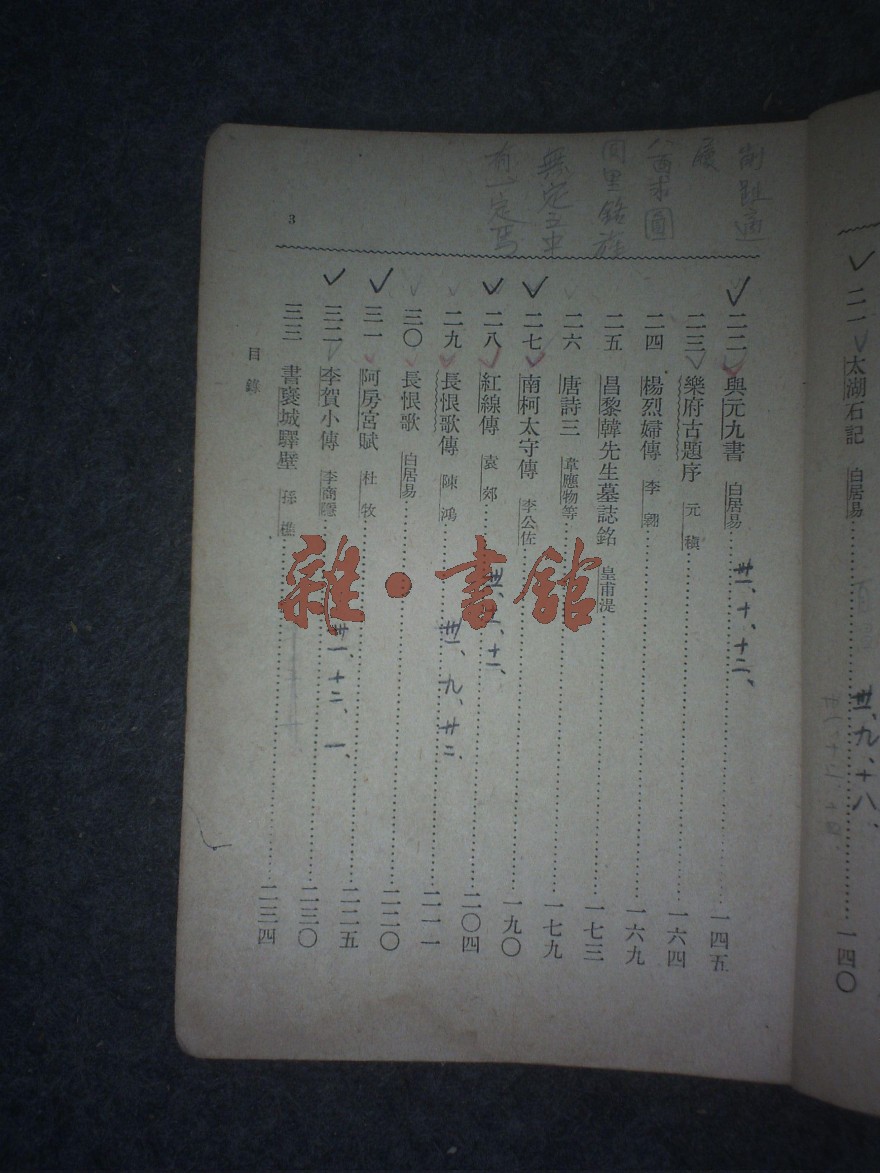 二一 太湖石記 白居易……一四〇
卅一、九、十八、
二二 與元九書 白居易……一四五
卅一、十、十二、
二三 樂府古題序 元稹……一六四
二四 楊烈婦傳 李翱……一六九
二五 昌黎韓先生墓誌銘 皇甫湜……一七三
二六 唐詩三 韋應物等……一七九
二七 南柯太守傳 李公佐……一九〇
二八 紅線傳 袁郊……二〇四
二九 長恨歌傳 陳鴻……二一一
卅一、九、廿二、
三〇 長恨歌 白居易……二二〇
三一 阿房宮賦 杜牧……二二五
三二 李賀小傳 李商隱……二三〇
卅一、十二、一、
三三 書襃城驛壁 孫樵……二三四
目錄
3
雜·書館